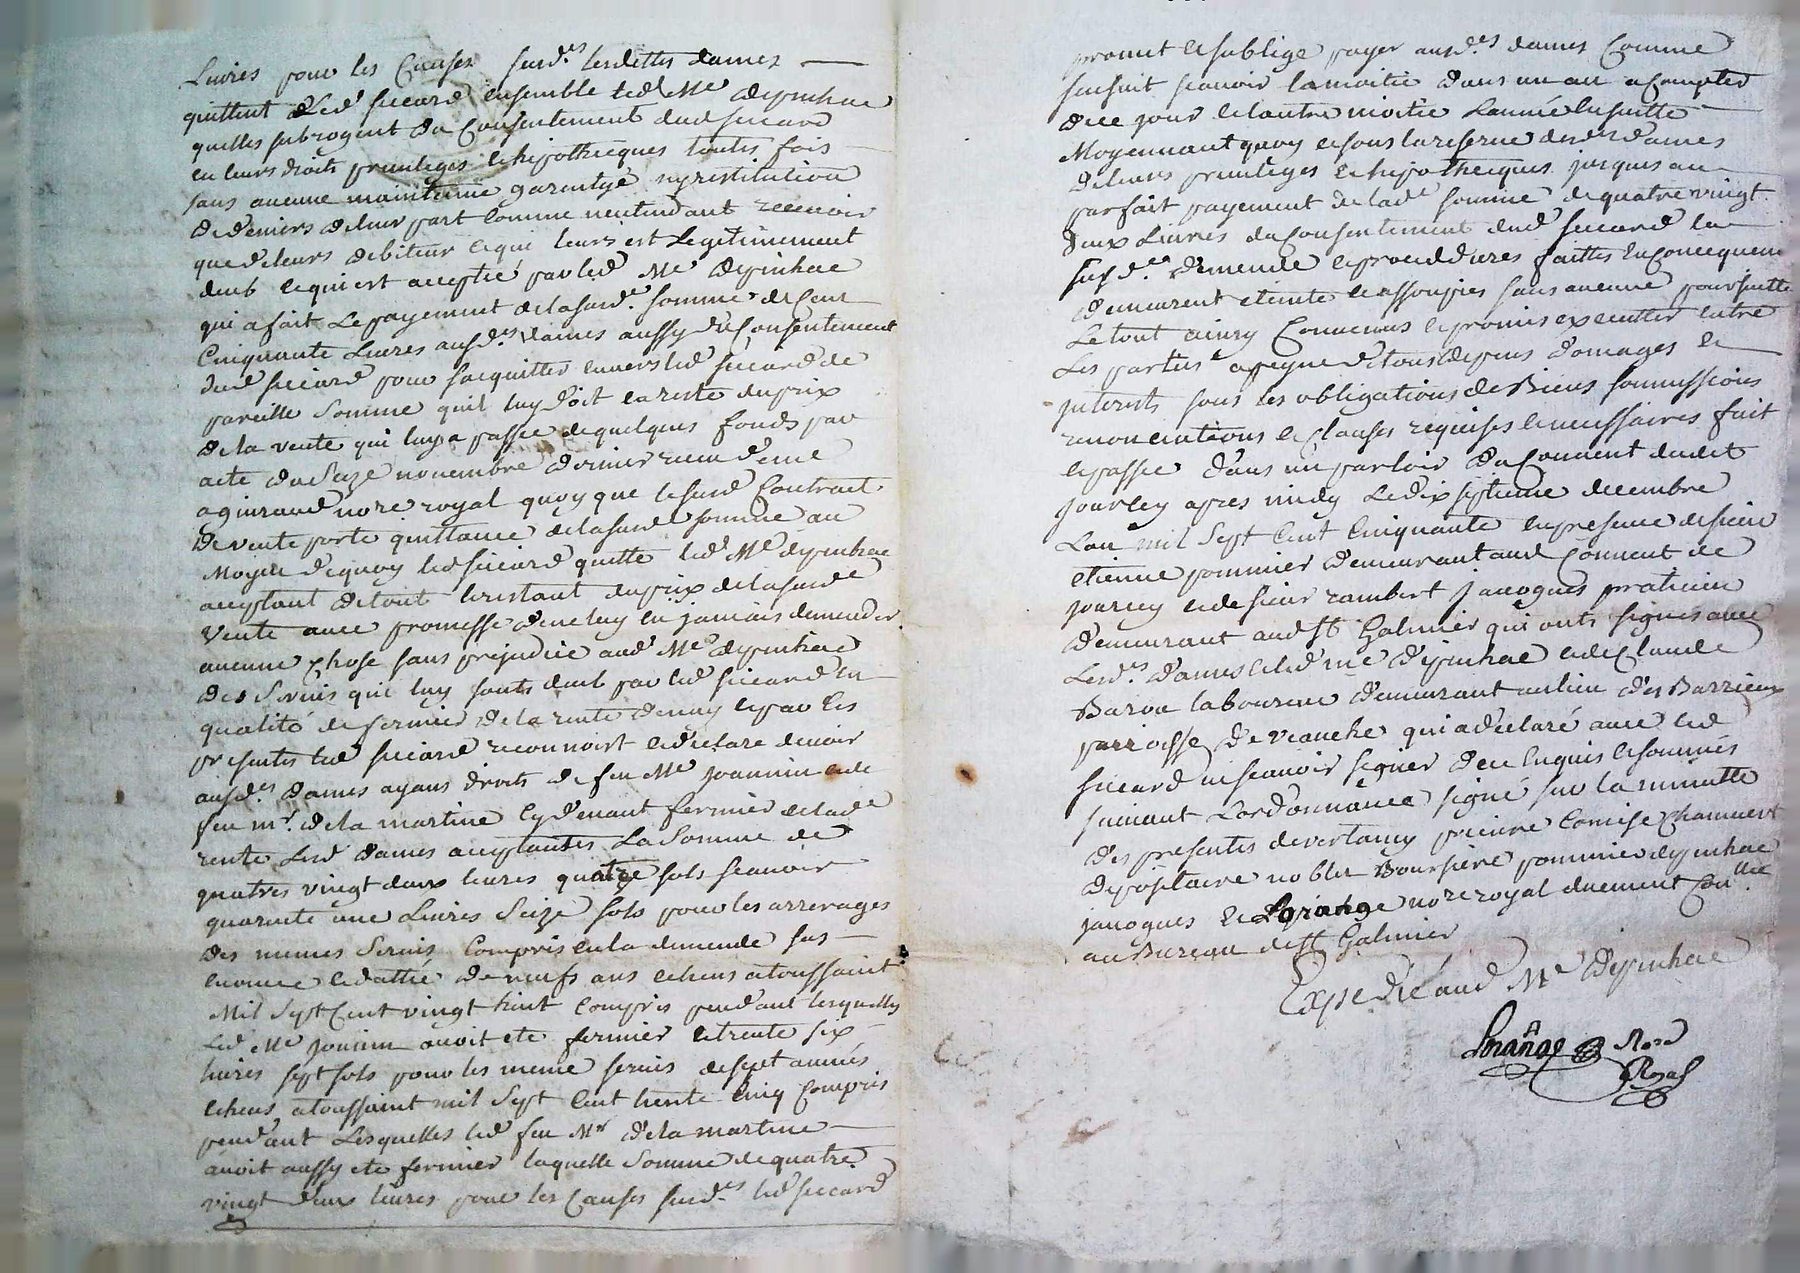 Livres pour les Causes susd.es lesdittes dames
quittent Led siccard ensemble led Me depinhac
quelles subrogent du Consentement dud siccard
en leurs droits privileges et hipotheques toutes fois
sans aucune maintenue garentye ny restitution
de deniers de leur part Comme nentendant recevoir
que de leurs debiteur et qui leurs est Legitimement
deub ce qui est accepté par led Me depinhac
qui a fait Le payement de la susd.e somme de Cent
Cinquante Livres ausd.es dames aussy du Consentement
dud siccard pour sacquitter envers led siccard de
pareille somme quil luy doit en reste du prix
de la vente qui luy a passée de quelques fonds par
acte du seze novembre dernier receu deme
aginraud no.re royal quoy que le susd Contract
de vente porte quittance de la susd somme au
Moyen de quoy led siccard quitte led Me depinhac
acceptant de tout le restant du prix de la susd.e
Vente avec promesse de ne luy en jamais demander
aucune chose sans prejudice aud Me depinhac
des servis qui luy sonts deub par led siccard en
qualité de fermier de la rente et par Les
presentes led siccard reconnoist et declare devoir
ausd.es dames ayans droits de feu Me Joannin et de
feu mr. de la martine Cy devant fermier de lad.e
rente Lesd dames acceptantes La Somme de
quatres vingt deux livres quatre sols scavoir
quarente une Livres Seize sols pour les arrerages
des memes servis Compris en la demende sus
enoncé et dattée de neufs ans echeus a toussaint
Mil Sept Cent vingt huit Compris pendant lesquelles
Led Me Joannin avoit ete fermier et trente six
livres sept sols pour les meme servis de sept années
echeus a toussaint mil Sept Cent trente Cinq Compris
pendant Lesquelles led feu Mr de la martine
avoit aussy ete fermier laquelle Somme de quatre
vingt deux livres pour les Causes susd.es led siccard
promet et soblige payer ausd.es dames Comme
sensuit scavoir la moitie dans un an a Compter
de ce jour et lautre moitie Lannée ensuitte
Moyennant quoy et sous la reserve desd.es dames
de leurs privileges et hipotheques jusques au
parfait payement de lad.e somme de quatre vingt
deux Livres du Consentement dud siccard la
susd.e demende et proceddures faittes en Consequence
demeurent eteinte et assoupies sans aucune poursuitte
Le tout ainsy Convenus et promis executter entre
Les parties a peyne de tous depens domages et
interests sous les obligations de Biens soumissions
renonciations et Clauses requises et necessaires fait
et passée dans un parloir du Couvent dudit
Jourcey apres midy Le dix septieme decembre
Lan mil Sept Cent Cinquante en presence de sieur
etienne pommier demeurant aud Couvent de
Jourcey et de sieur rambert Jacoques praticien
demeurant aud St Galmier qui onts signes avec
Lesd.es dames et led me depinhac et de Claude
Barou laboureur demeurant au lieu des Barrieux
parroisse de veauche qui a declaré avec led
siccard ne scavoir signer de ce Enquis et sommés
suivant Lordonnance signé sur la minutte
des presentes de vertamy prieure Comise chammert
depositaire noblet Boursiere pommier depinhac
Jacoques et Lgrange no.re royal duement Con.llé
au Bureau de St Galmier
Expedié aud Me Depinhac
Lgrange Nore
Royal